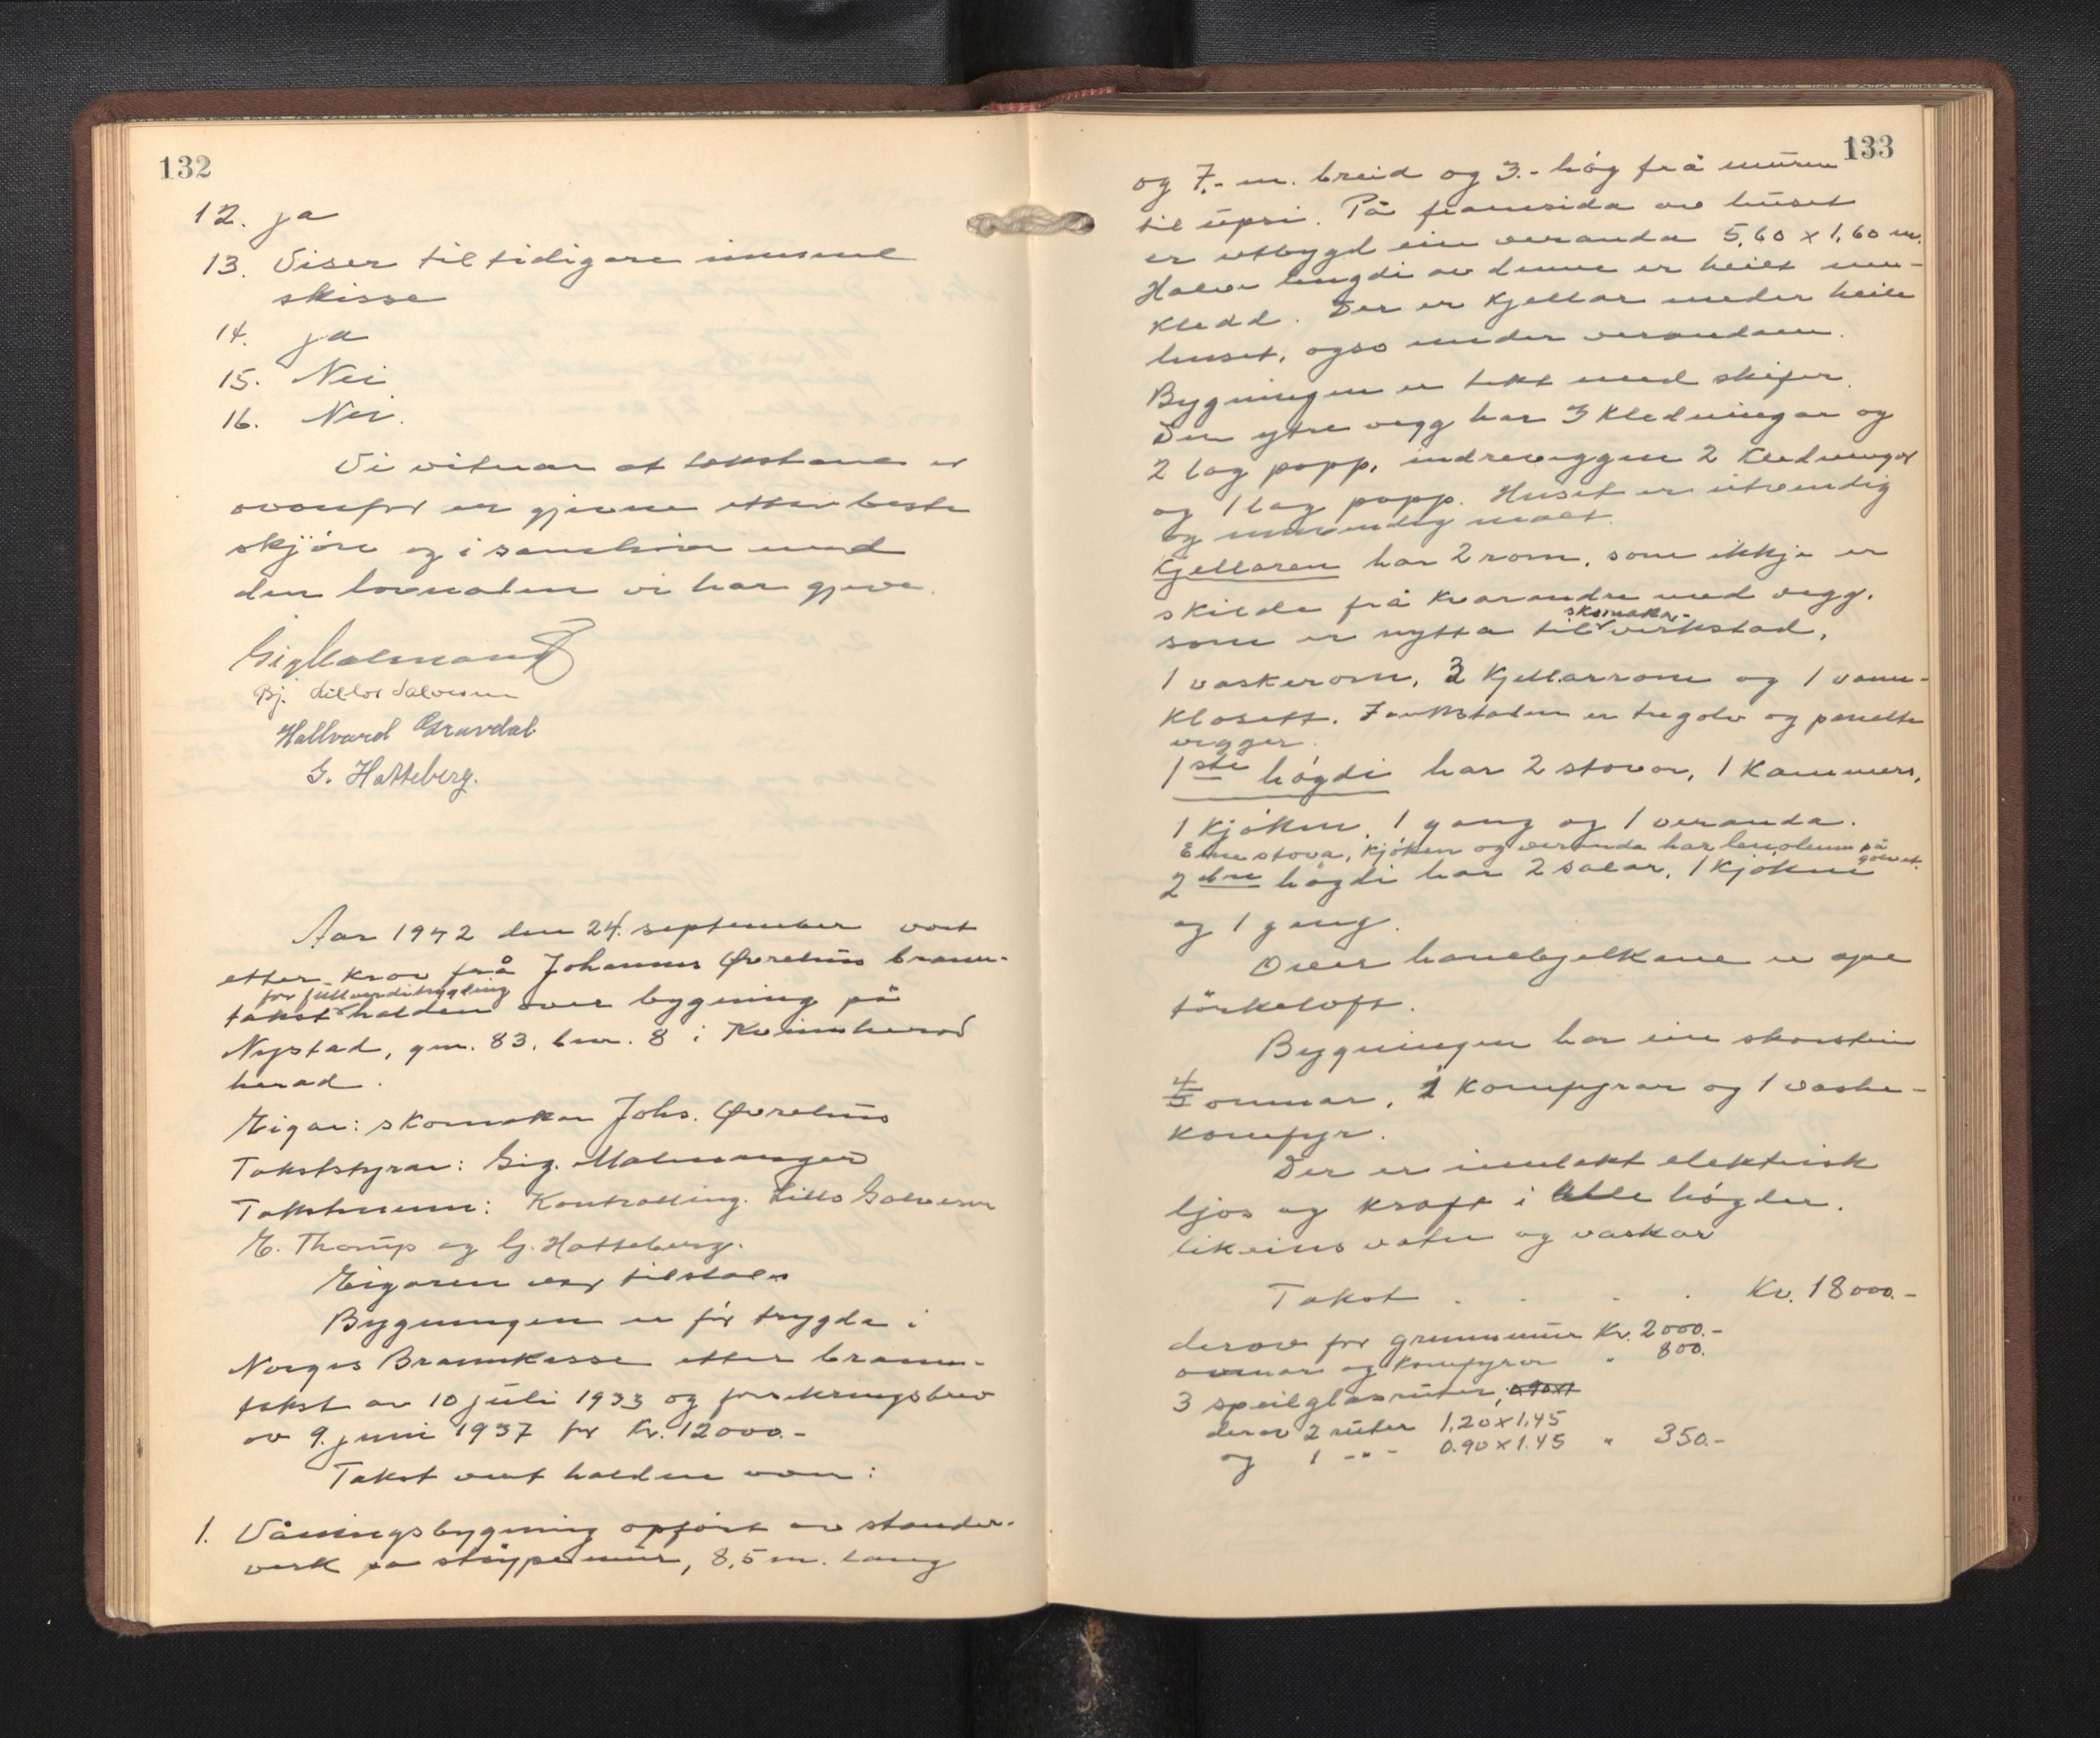 132
12. ja
13. Viser til tidigare innsend
skisse
14. ja
15. Nei
16. Nei.
Vi vitnar at takstane er
ovanfor er gjevne etter beste
skjøn og i samhøve med
den lovnaden vi har gjeve.
Sig Malmanger
Bj. Lillo Salvesen
Hallvard Gravdal
G. Hatteberg.
Aar 1942 den 24. september vart
etter krav frå Johannes Øvrehus brann-
for fullverditrygding
takst halden over bygning på
Nystad, gnr. 83, bnr. 8 i Kvinnherad
herad.
Eigar: skomakar Johs. Øvrehus
Takststyrar: Sig. Malmanger
Takstmenn: Kontrolling. Lillo Salvesen
E. Thorup og G. Hatteberg.
Eigaren var tilstades
Bygningen er før trygda i
Norges Brannkasse etter brann-
takst av 10 juli 1933 og forsikringsbrev
av 9. juni 1937 for kr. 12000.-
Takst vart halden over:
1. Våningsbygning opført av stander-
verk på støypemur, 8,5 m. lang
133
og 7.- m. breid og 3.- høg frå muren
til upsi. På framsida av huset
er utbygd ein veranda 5,60 x 1,60 m.
Halve lengdi av denne er heilt inn-
kledd. Der er kjellar under heile
huset, ogso under verandaen.
Bygningen er tekt med skifer.
Den ytre vegg har 3 kledningar og
2 lag papp, indreveggen 2 kledningar
og 1 lag papp. Huset er utvendig
og innvendig malt.
Kjellaren har 2 rom, som ikkje er
skilde frå kvarandre med vegg,
skomakar-
som er nytta til verkstad,
1 vaskerom, 3 kjellarrom og 1 vann-
klosett. I verkstaden er tregolv og panelte
vegger.
1ste høgdi har 2 stover, 1 kammers,
1 kjøken, 1 gang og 1 veranda.
Eine stova, kjøken og veranda har linoleum på
golvet.
2dre høgdi har 2 salar, 1 kjøken
og 1 gang.
Over hanebjelkane er ope
tørkeloft.
Bygningen har ein skorstein
4 omnar, 2 komfyrar og 1 vaske-
komfyr.
Der er innlakt elektrisk
ljos og kraft i alle høgder.
likeins vatn og vaskar
Takst . . . . Kr. 18000.-
derav for grunnmur Kr. 2000.-
omnar og komfyrer " 800.
3 speilglasruter, 0.90x1
derav 2 ruter 1,20 x 1,45
og 1 -"- 0.90 x 1.45 " 350.-